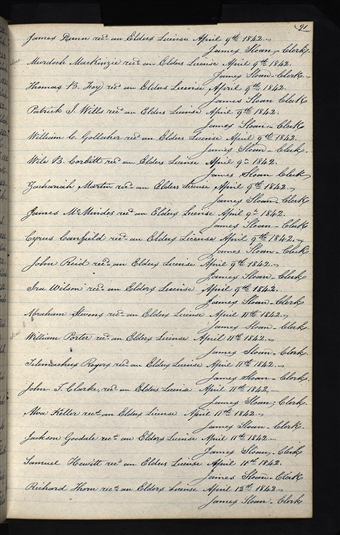 91
James Dunn rec.d an Elders License April 9th 1842.
James Sloan, Clerk.
Murdoch Mackinzie rec.d an Elders License April 9th 1842.
James Sloan - Clerk.
Thomas B. Foy rec.d an Elders License, April 9th 1842.
James Sloan Clerk
Patrick J. Wills rec.d an Elders License April 9th 1842.
James Sloan - Clerk
William C. Gallaher rec.d an Elders License April 9th 1842.
James Sloan - Clerk.
B. Corbitt rec.d an Elders License April 9th 1842.
James Sloan Clerk
Zachariah Martin rec.d an Elders License April 9th 1842.
James Sloan - Clerk
James rec.d an Elders License April 9th 1842.
James Sloan - Clerk
Cyrus Canfield rec.d an Elders License April 9th 1842.
James Sloan - Clerk
John Reid rec.d an Elders License April 9th 1842.
James Sloan - Clerk
Ira Wilson rec.d an Elders License April 9th 1842.
James Sloan - Clerk
Abraham Stevens rec.d an Elders License April 11th 1842.
James Sloan - Clerk
William Porter rec.d an Elders License April 11th 1842.
James Sloan - Clerk.
Rogers rec.d an Elders License April 11th 1842.
James Sloan - Clerk
John T. Clarke, rec.d an Elders License April 11th 1842.
James Sloan, Clerk
Keller rec.d an Elders License April 11th 1842.
James Sloan - Clerk.
Jackson Goodale rec.d an Elders License April 11th 1842.
James Sloan, Clerk
Samuel Hewitt rec.d an Elders License April 11th 1842.
James Sloan - Clerk
Richard Thorn rec.d an Elders License April 12th 1842.
James Sloan - Clerk